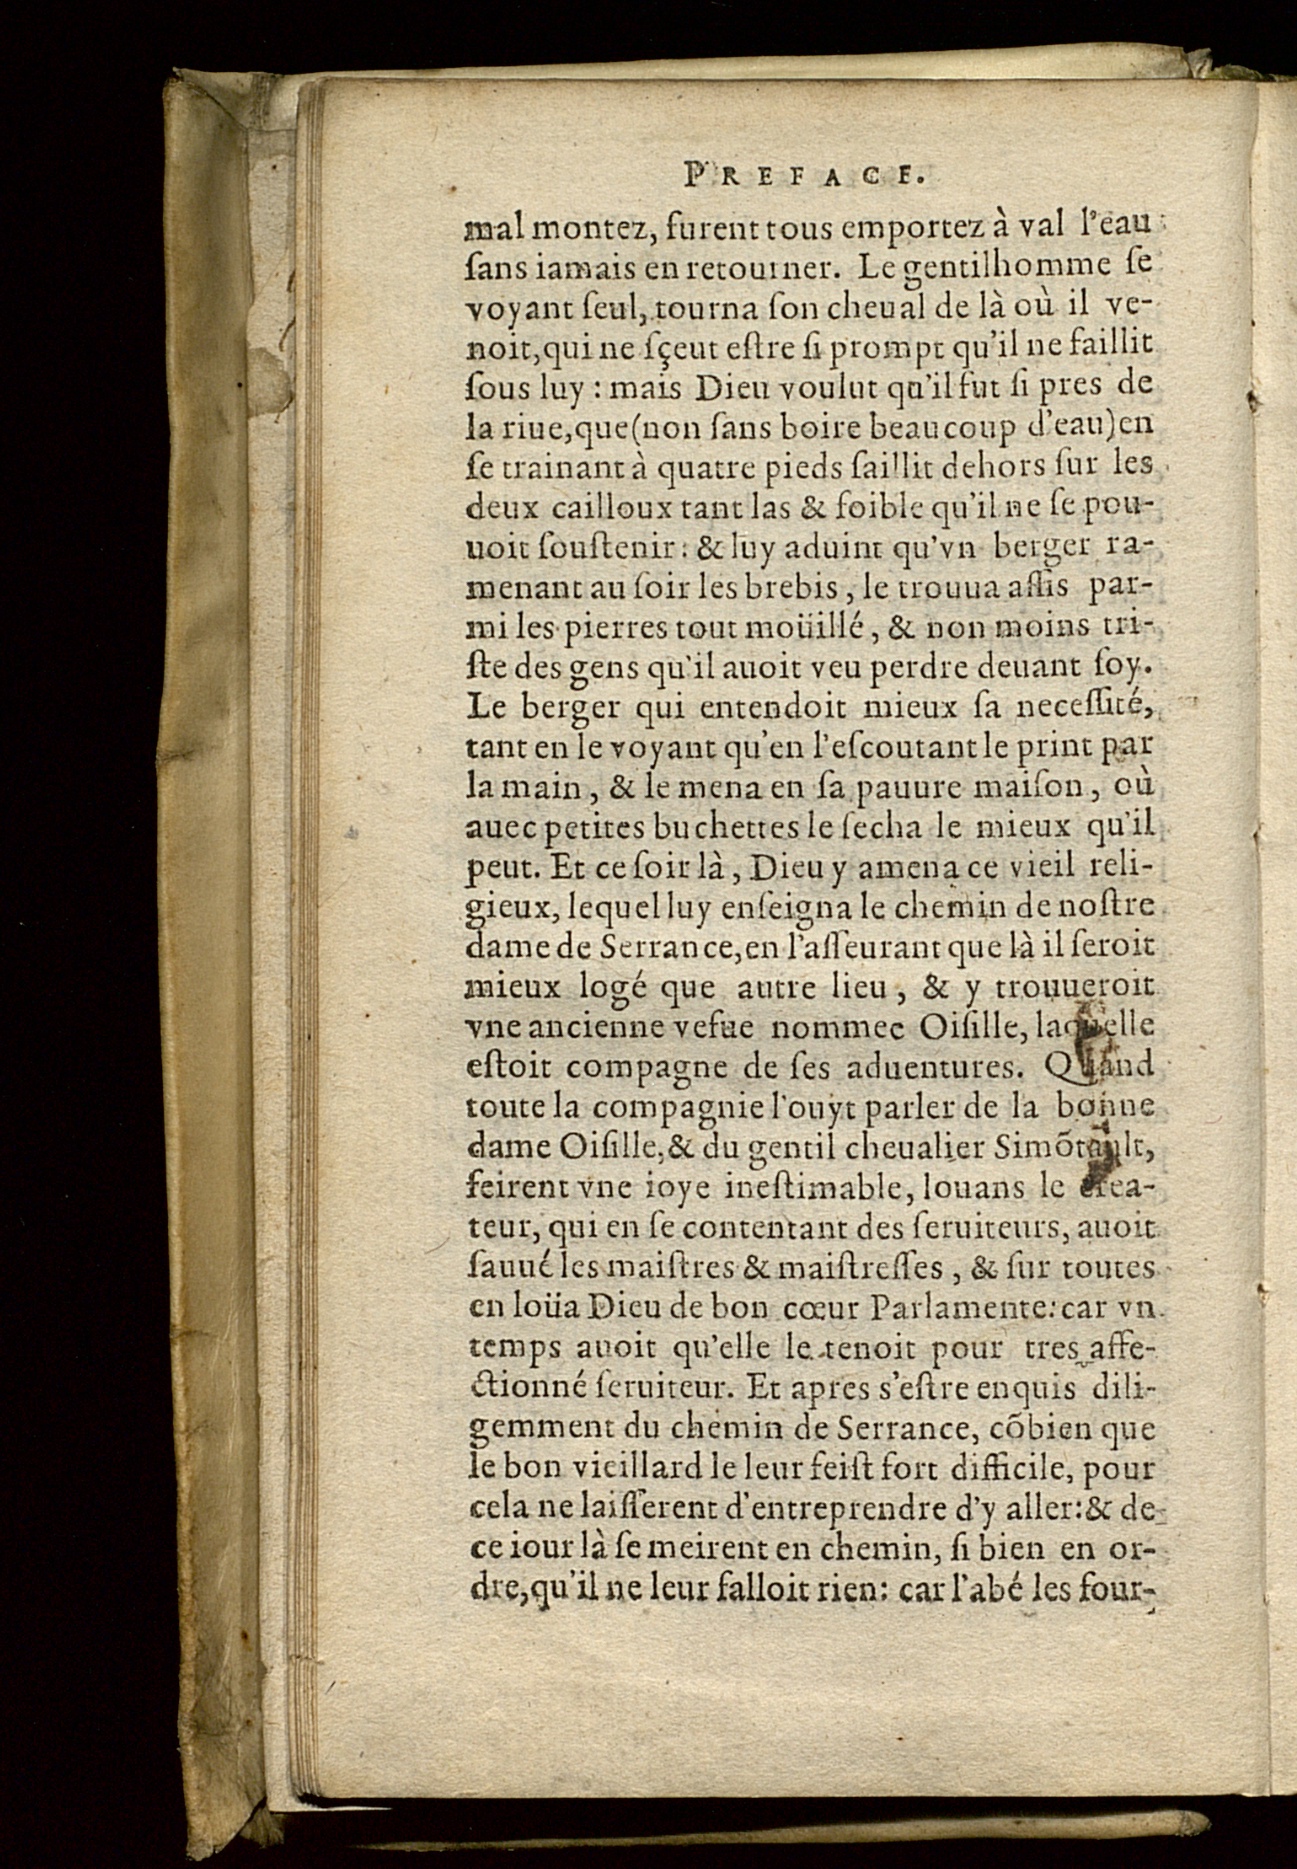 PREFACE.
mal montez, furent tous emportez à val l'eau
ſans iamais en retourner. Le gentilhomme ſe
voyant ſeul, tourna ſon cheual de là où il ve-
noit, qui ne ſçeut eſtre ſi prompt qu'il ne faillit
ſous luy : mais Dieu voulut qu'il fut ſi pres de
la riue, que (non ſans boire beaucoup d'eau) en
ſe trainant à quatre pieds ſaillit dehors ſur les
deux cailloux tant las & foible qu'il ne ſe pou-
uoit ſouſtenir : & luy aduint qu'vn berger ra-
menant au ſoir les brebis, le trouua aſſis par-
mi les pierres tout moüillé, & non moins tri-
ſte des gens qu'il auoit veu perdre deuant ſoy.
Le berger qui entendoit mieux ſa neceſſité,
tant en le voyant qu'en l'eſcoutant le print par
la main, & le mena en ſa pauure maiſon, où
auec petites buchettes le ſecha le mieux qu'il
peut. Et ce ſoir là, Dieu y amena ce vieil reli-
gieux, lequel luy enſeigna le chemin de noſtre
dame de Serrance, en l'aſſeurant que là il ſeroit
mieux logé que autre lieu, & y trouueroit
vne ancienne vefue nommee Oiſille, laquelle
eſtoit compagne de ſes aduentures. Quand
toute la compagnie l'ouyt parler de la bonne
dame Oiſille, & du gentil cheualier Simõtault,
feirent vne ioye ineſtimable, louans le crea-
teur, qui en ſe contentant des ſeruiteurs, auoit
ſauué les maiſtres & maiſtreſſes, & ſur toutes
en loüa Dieu de bon cœur Parlamente: car vn
temps auoit qu'elle le tenoit pour tres affe-
ctionné ſeruiteur. Et apres s'eſtre enquis dili-
gemment du chemin de Serrance, cõbien que
le bon vieillard le leur feiſt fort difficile, pour
cela ne laiſſerent d'entreprendre d'y aller: & de
ce iour là ſe meirent en chemin, ſi bien en or-
dre, qu'il ne leur falloit rien: car l'abé les four-